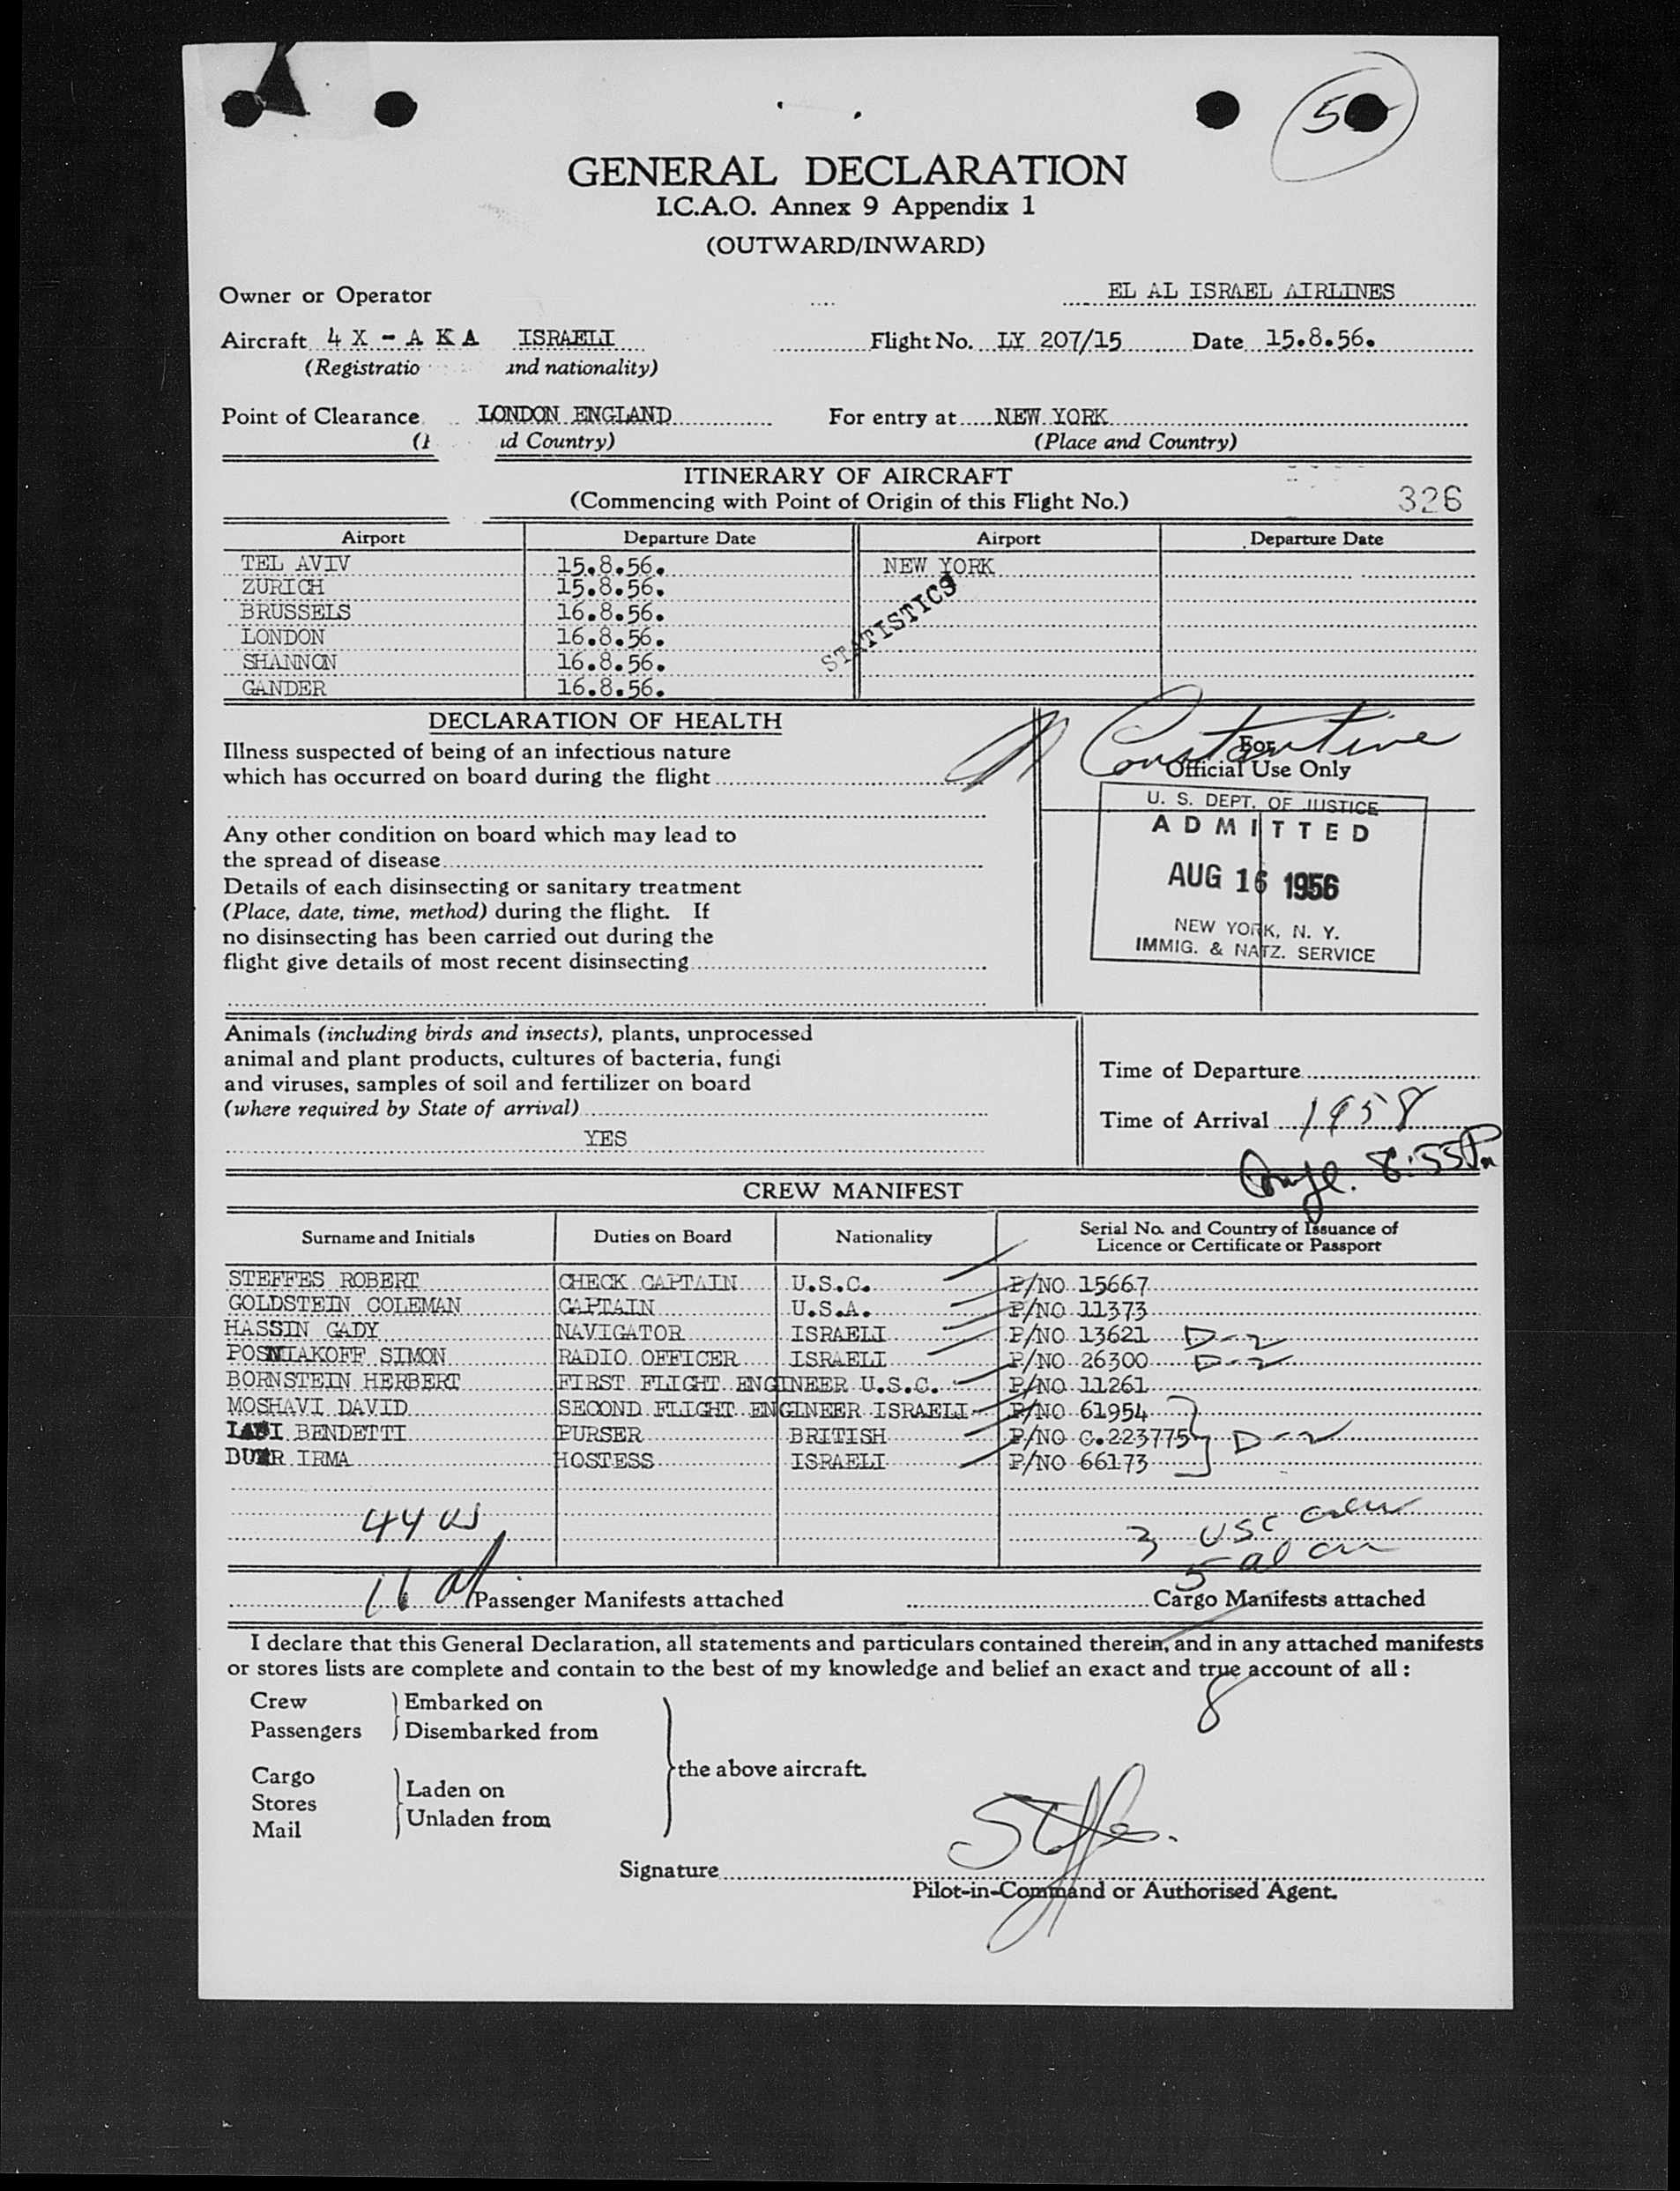 50
GENERAL DECLARATION
I.C.A.O. Annex 9 Appendix 1
(OUTWARD/INWARD)
Owner or Operator .... EL AL ISRAEL AIRLINES
Aircraft 4 X - A K A ISRAELI Flight No. LY 207/15 Date 15.8.56.
(Registratio and nationality)
Point of Clearance LONDON ENGLAND For entry at NEW YORK
d Country) (Place and Country)
ITINERARY OF AIRCRAFT
(Commencing with Point of Origin of this Flight No.) 326
Airport Departure Date Airport Departure Date
TEL AVIV 15.8.56. NEW YORK
ZURICH 15.8.56.
BRUSSELS 16.8.56.
LONDON 16.8.56.
SHANNON 16.8.56.
GANDER 16.8.56.
STATISTICS
DECLARATION OF HEALTH
Illness suspected of being of an infectious nature
which has occurred on board during the flight
Any other condition on board which may lead to
the spread of disease
Details of each disinsecting or sanitary treatment
(Place, date, time, method) during the flight. If
no disinsecting has been carried out during the
flight give details of most recent disinsecting
Constantine
For
Official Use Only
U. S. DEPT. OF JUSTICE
ADMITTED
AUG 16 1956
NEW YORK, N. Y.
IMMIG. & NATZ. SERVICE
Animals (including birds and insects), plants, unprocessed
animal and plant products, cultures of bacteria, fungi
and viruses, samples of soil and fertilizer on board
(where required by State of arrival)
YES
Time of Departure
Time of Arrival 1958
8:55 Pm
CREW MANIFEST
Surname and Initials Duties on Board Nationality Serial No. and Country of Issuance of
Licence or Certificate or Passport
STEFFES ROBERT CHECK CAPTAIN U.S.C. P/NO 15667
GOLDSTEIN COLEMAN CAPTAIN U.S.A. P/NO 11373
HASSIN GADY NAVIGATOR ISRAELI P/NO 13621 D-2
POSNIAKOFF SIMON RADIO OFFICER ISRAELI P/NO 26300 D-2
BORNSTEIN HERBERT FIRST FLIGHT ENGINEER U.S.C. P/NO 11261
MOSHAVI DAVID SECOND FLIGHT ENGINEER ISRAELI P/NO 61954
BENDETTI PURSER BRITISH P/NO C.223775 D-2
IRMA HOSTESS ISRAELI P/NO 66173
44 3 USC crew
5 al
16 al Passenger Manifests attached Cargo Manifests attached
I declare that this General Declaration, all statements and particulars contained therein, and in any attached manifests
or stores lists are complete and contain to the best of my knowledge and belief an exact and true account of all :
8
Crew Embarked on
Passengers Disembarked from
the above aircraft.
Cargo
Stores Laden on
Mail Unladen from
Steffes.
Signature
Pilot-in-Command or Authorised Agent.